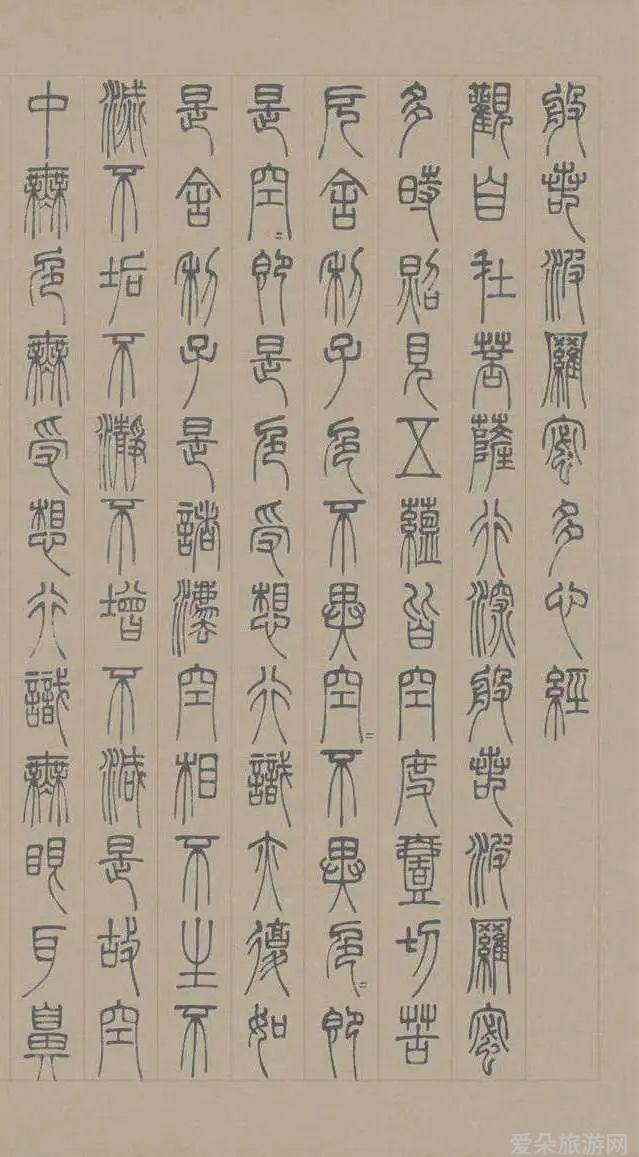 般若波羅蜜多心經
觀自在菩薩行深般若波羅蜜
多時照見五蘊皆空度壹切苦
厄舍利子色不異空〻不異色〻即
是空〻即是色受想行識亦復如
是舍利子是諸法空相不生不
滅不垢不瀞不增不減是故空
中無色無受想行識無眼耳鼻
爱朵旅游网